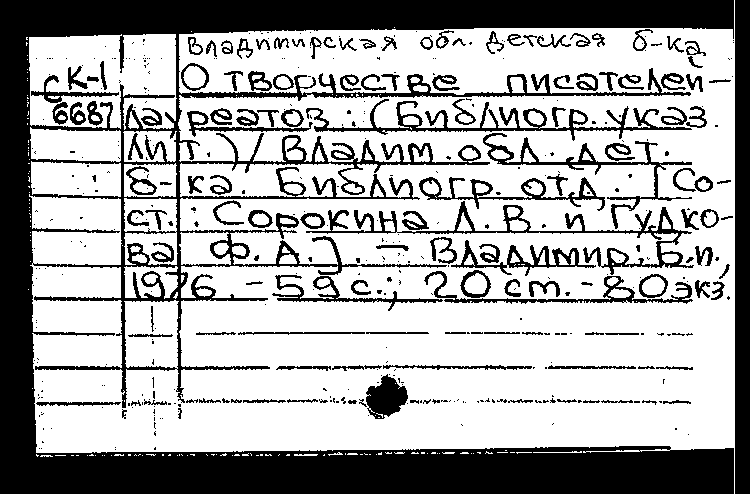 Владимирская обл. детская б-ка
СК-1 О творчестве писателей-
6687 лауреатов : (Библиогр. указ.
лит.) / Владим. обл. дет.
б-ка. Библиогр. отд. ; [Со-
ст. : Сорокина Л. В. и Гудко-
ва Ф. А.]. — Владимир : Б.и.,
1976. - 59 с.; 20 см. - 80 экз.